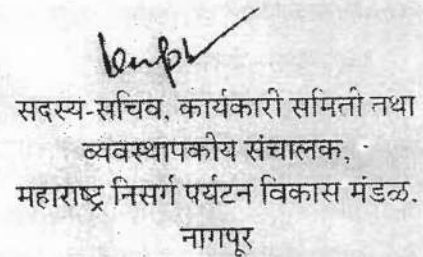 सदस्य-सचिव, कार्यकारी समिती तथा
व्यवस्थापकीय संचालक,
महाराष्ट्र निसर्ग पर्यटन विकास मंडळ.
नागपूर